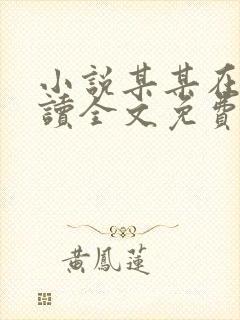 小說某某在
讀全文免費
黃鳳蓮